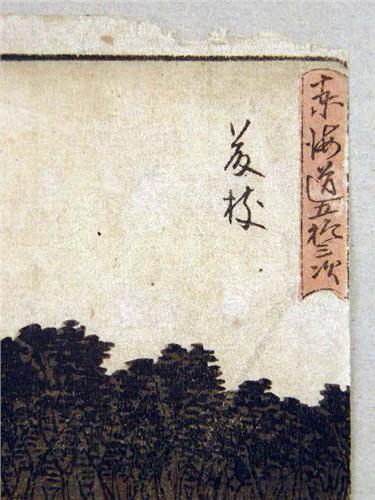 東海道五拾三次
藤枝